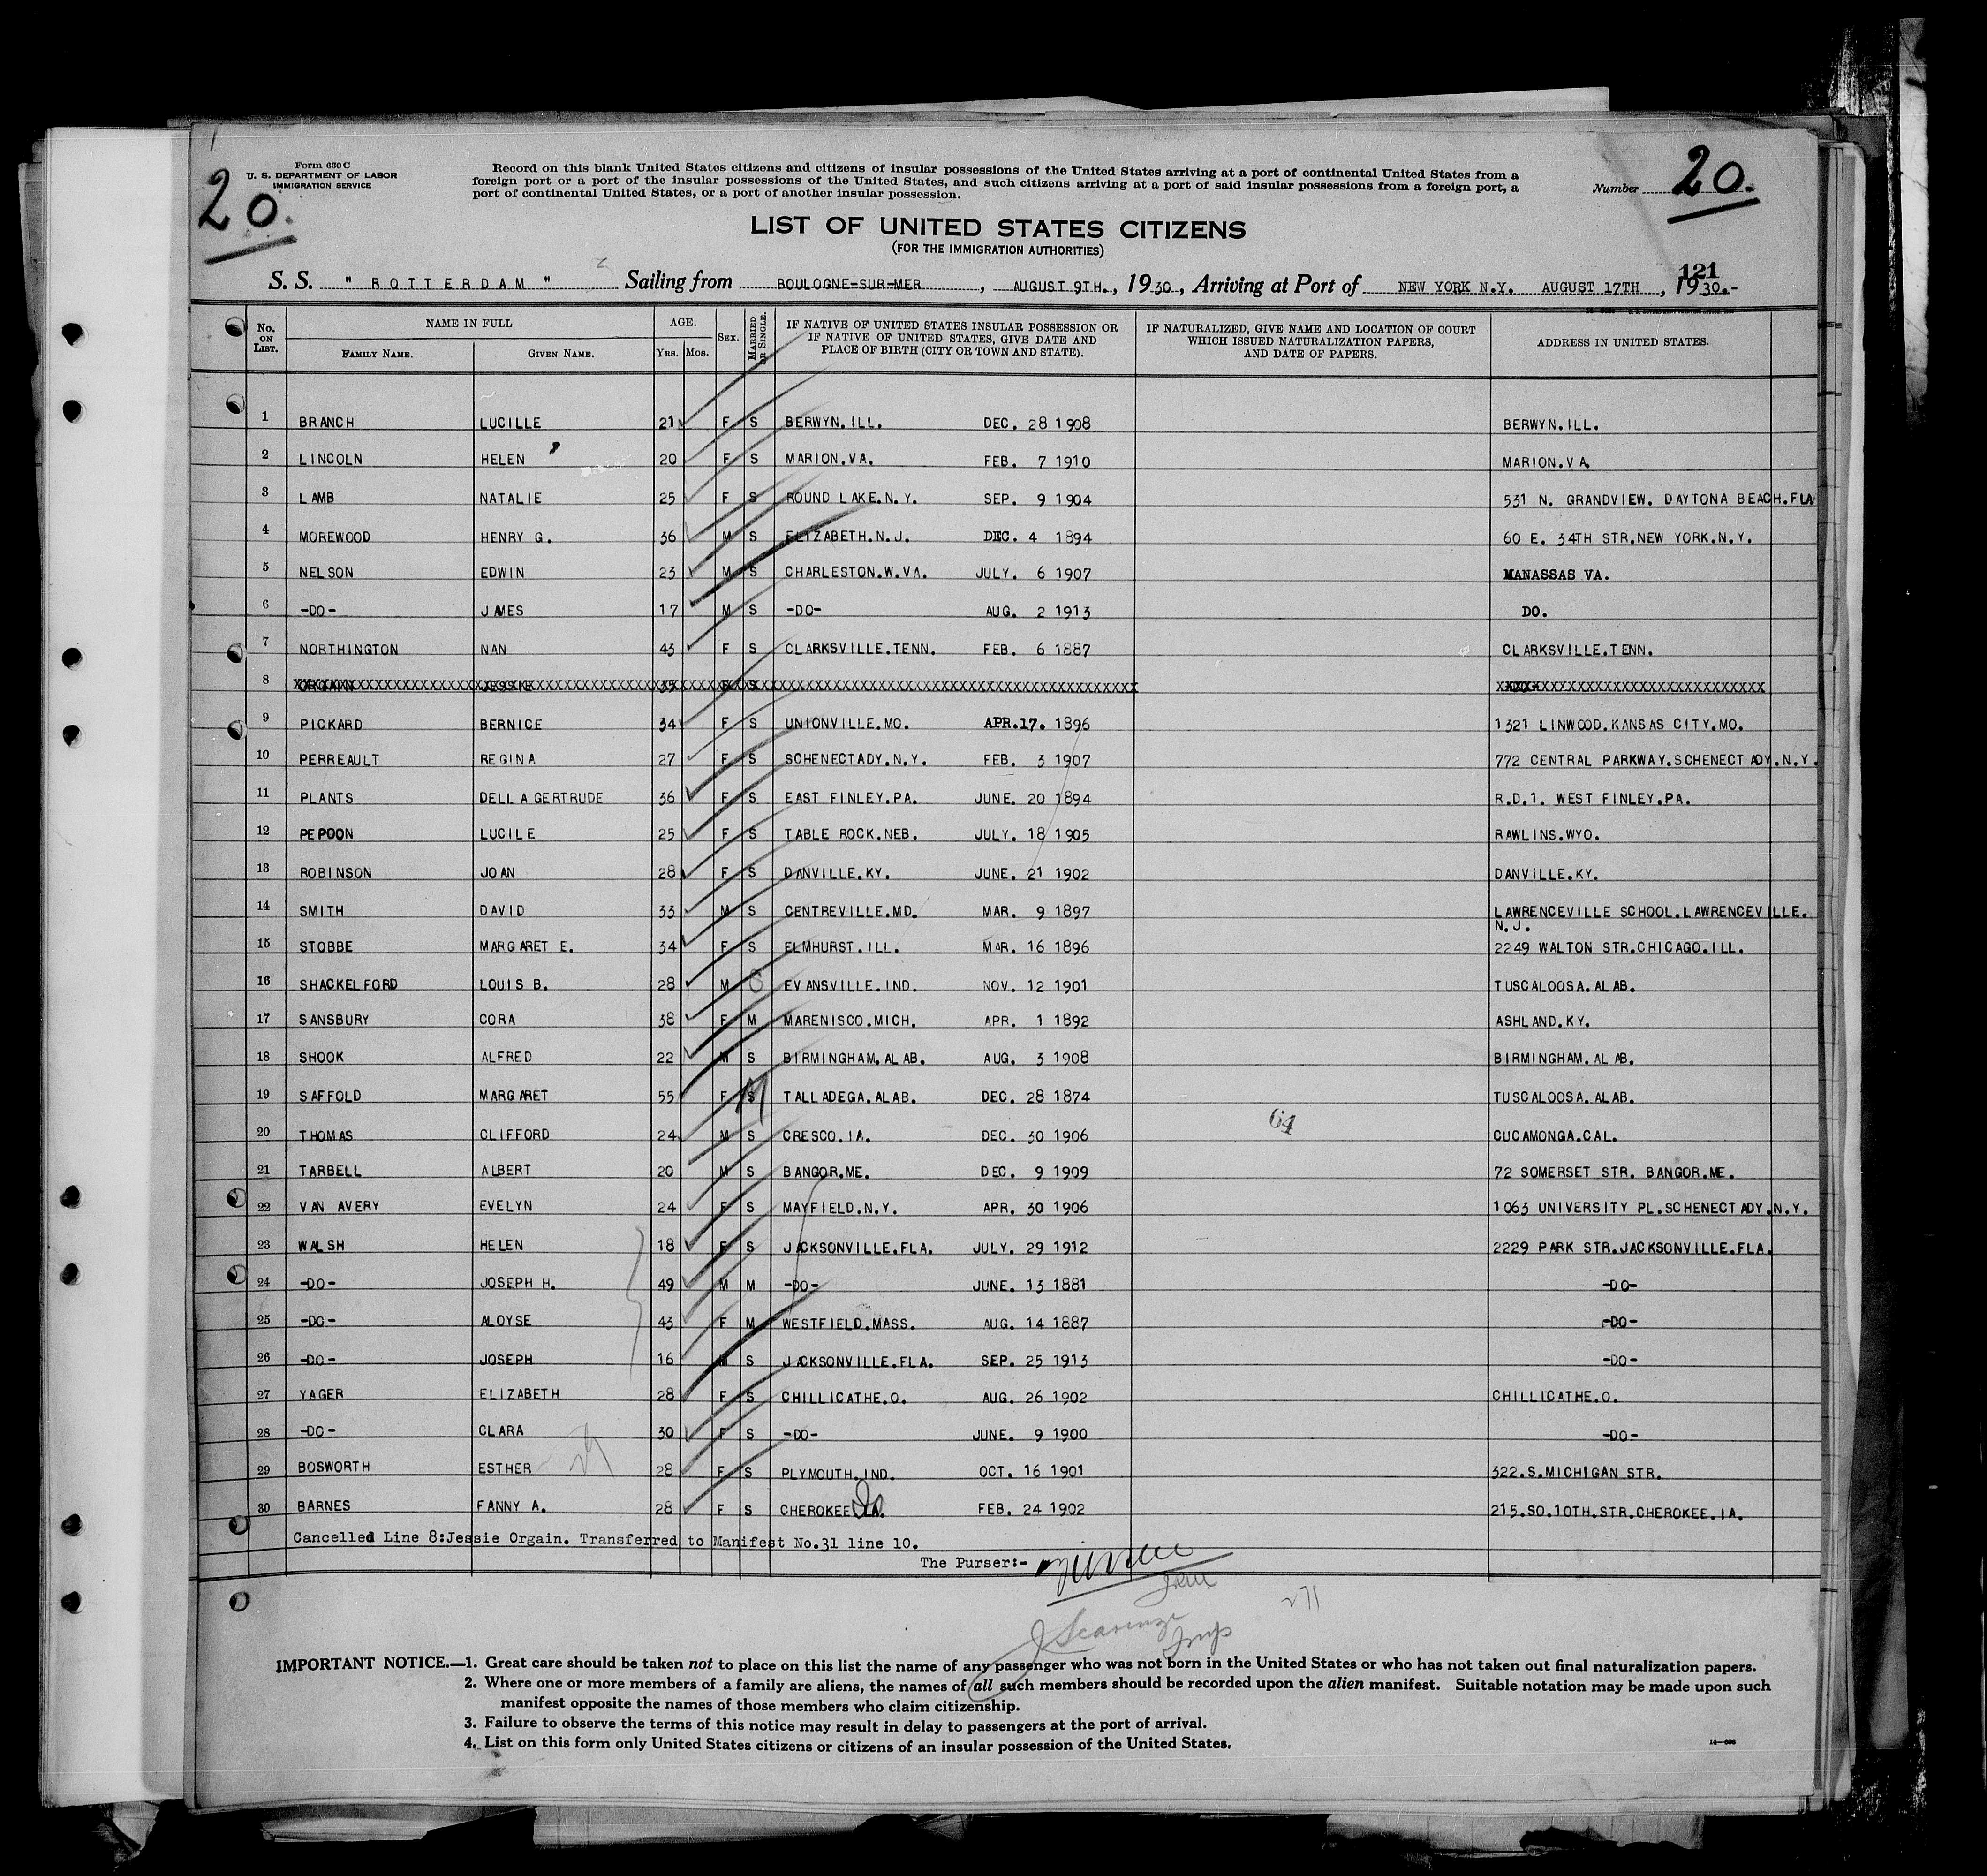 Form 630 C
U. S. DEPARTMENT OF LABOR
IMMIGRATION SERVICE
20.
Record on this blank United States citizens and citizens of insular possessions of the United States arriving at a port of continental United States from a
foreign port or a port of the insular possessions of the United States, and such citizens arriving at a port of said insular possessions from a foreign port, a
port of continental United States, or a port of another insular possession.
Number 20.
LIST OF UNITED STATES CITIZENS
(FOR THE IMMIGRATION AUTHORITIES)
121
S. S. " ROTTERDAM " Sailing from BOULOGNE-SUR-MER , AUGUST 9TH. , 19 30 , Arriving at Port of NEW YORK N.Y. AUGUST 17TH , 19 30.-
No. ON LIST. NAME IN FULL FAMILY NAME. GIVEN NAME. AGE. YRS. MOS. SEX. MARRIED OR SINGLE. IF NATIVE OF UNITED STATES INSULAR POSSESSION OR IF NATIVE OF UNITED STATES, GIVE DATE AND PLACE OF BIRTH (CITY OR TOWN AND STATE). IF NATURALIZED, GIVE NAME AND LOCATION OF COURT WHICH ISSUED NATURALIZATION PAPERS, AND DATE OF PAPERS. ADDRESS IN UNITED STATES.
1 BRANCH LUCILLE 21 F S BERWYN.ILL. DEC. 28 1908 BERWYN.ILL.
2 LINCOLN HELEN 20 F S MARION.VA. FEB. 7 1910 MARION.VA
3 LAMB NATALIE 25 F S ROUND LAKE.N.Y. SEP. 9 1904 531 N. GRANDVIEW. DAYTONA BEACH.FLA
4 MOREWOOD HENRY G. 36 M S ELIZABETH.N.J. DEC. 4 1894 60 E. 34TH STR.NEW YORK.N.Y.
5 NELSON EDWIN 23 M S CHARLESTON.W.VA. JULY. 6 1907 MANASSAS VA.
6 -DO- JAMES 17 M S -DO- AUG. 2 1913 DO.
7 NORTHINGTON NAN 43 F S CLARKSVILLE.TENN. FEB. 6 1887 CLARKSVILLE.TENN.
8 ORGAIN JESSIE 35 S
9 PICKARD BERNICE 34 F S UNIONVILLE.MO. APR.17. 1896 1321 LINWOOD.KANSAS CITY.MO.
10 PERREAULT REGINA 27 F S SCHENECTADY.N.Y. FEB. 3 1907 772 CENTRAL PARKWAY.SCHENECTADY.N.Y.
11 PLANTS DELLA GERTRUDE 36 F S EAST FINLEY.PA. JUNE. 20 1894 R.D.1. WEST FINLEY.PA.
12 PEPOON LUCILE 25 F S TABLE ROCK.NEB. JULY. 18 1905 RAWLINS.WYO.
13 ROBINSON JOAN 28 F S DANVILLE.KY. JUNE. 21 1902 DANVILLE.KY.
14 SMITH DAVID 33 M S CENTREVILLE.MD. MAR. 9 1897 LAWRENCEVILLE SCHOOL.LAWRENCEVILLE.
N.J.
15 STOBBE MARGARET E. 34 F S ELMHURST.ILL. MAR. 16 1896 2249 WALTON STR.CHICAGO.ILL.
16 SHACKELFORD LOUIS B. 28 M S EVANSVILLE.IND. NOV. 12 1901 TUSCALOOSA.ALAB.
17 SANSBURY CORA 38 F M MARENISCO.MICH. APR. 1 1892 ASHLAND.KY.
18 SHOOK ALFRED 22 M S BIRMINGHAM.ALAB. AUG. 3 1908 BIRMINGHAM.ALAB.
19 SAFFOLD MARGARET 55 F M TALLADEGA.ALAB. DEC. 28 1874 TUSCALOOSA.ALAB.
20 THOMAS CLIFFORD 24 M S CRESCO.IA. DEC. 30 1906 64 CUCAMONGA.CAL.
21 TARBELL ALBERT 20 M S BANGOR.ME. DEC. 9 1909 72 SOMERSET STR. BANGOR.ME.
22 VAN AVERY EVELYN 24 F S MAYFIELD.N.Y. APR. 30 1906 1063 UNIVERSITY PL.SCHENECTADY.N.Y.
23 WALSH HELEN 18 F S JACKSONVILLE.FLA. JULY. 29 1912 2229 PARK STR.JACKSONVILLE.FLA.
24 -DO- JOSEPH H. 49 M M -DO- JUNE. 13 1881 -DO-
25 -DO- ALOYSE 43 F M WESTFIELD.MASS. AUG. 14 1887 -DO-
26 -DO- JOSEPH 16 M S JACKSONVILLE.FLA. SEP. 25 1913 -DO-
27 YAGER ELIZABETH 28 F S CHILLICATHE.O. AUG. 26 1902 CHILLICATHE.O.
28 -DO- CLARA 30 F S -DO- JUNE. 9 1900 -DO-
29 BOSWORTH ESTHER 28 F S PLYMOUTH.IND. OCT. 16 1901 322.S.MICHIGAN STR.
30 BARNES FANNY A. 28 F S CHEROKEE IA. FEB. 24 1902 215.SO.10TH.STR.CHEROKEE.IA.
Cancelled Line 8:Jessie Orgain. Transferred to Manifest No.31 line 10.
The Purser:-
IMPORTANT NOTICE.—1. Great care should be taken not to place on this list the name of any passenger who was not born in the United States or who has not taken out final naturalization papers.
2. Where one or more members of a family are aliens, the names of all such members should be recorded upon the alien manifest. Suitable notation may be made upon such
manifest opposite the names of those members who claim citizenship.
3. Failure to observe the terms of this notice may result in delay to passengers at the port of arrival.
4. List on this form only United States citizens or citizens of an insular possession of the United States.